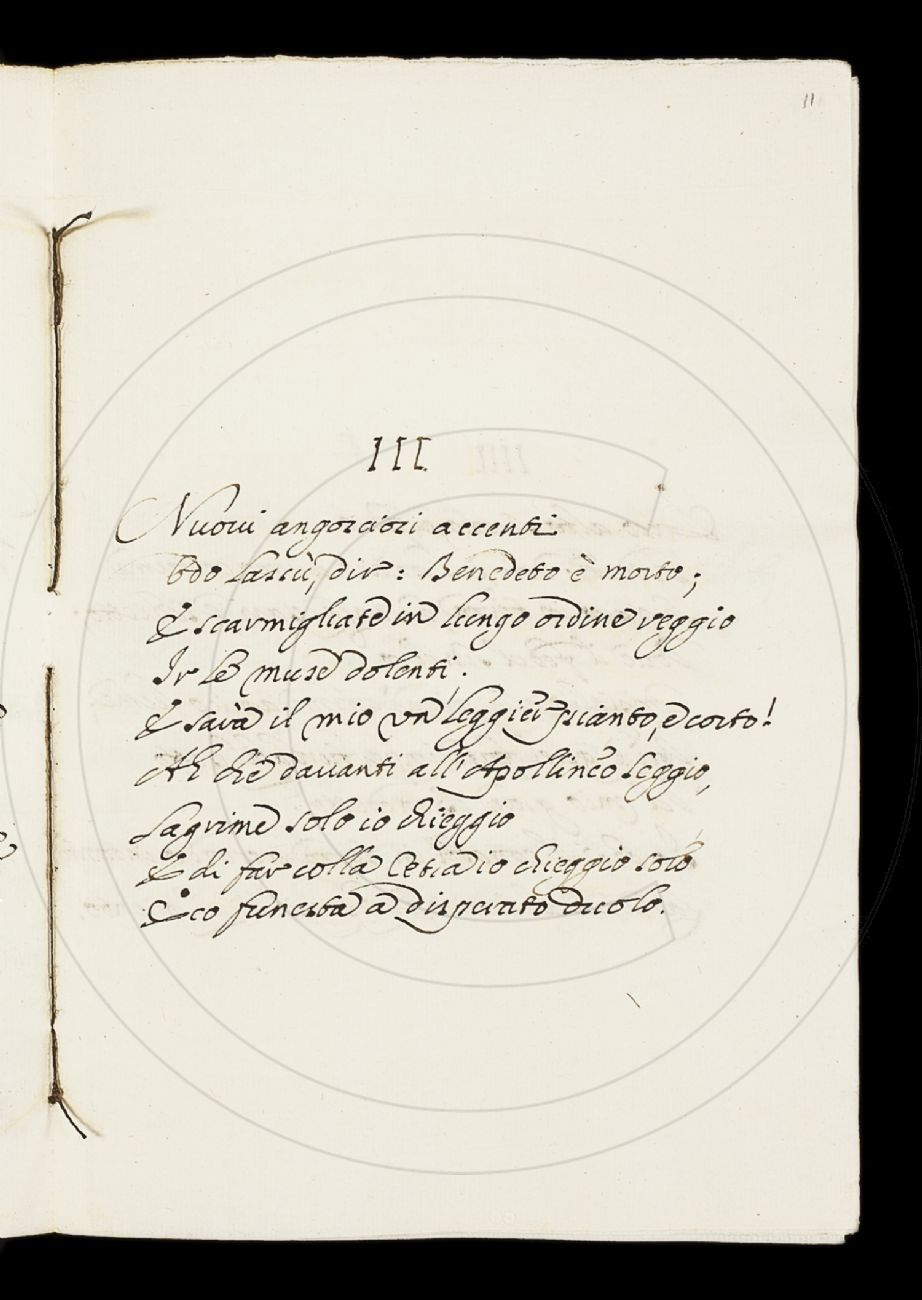 11
III.
Nuovi angosciosi accenti
Odo lassù, dir: Benedeto è morto;
E scarmigliate in lungo ordine veggio
Ir le muse dolenti;
E sarà il mio un leggier pianto, e corto!
Ah che davanti all'Apollineo Seggio,
Lagrime solo io chieggio
E di far colla Cetra io chieggio solo
Eco funesta a disperato duolo.